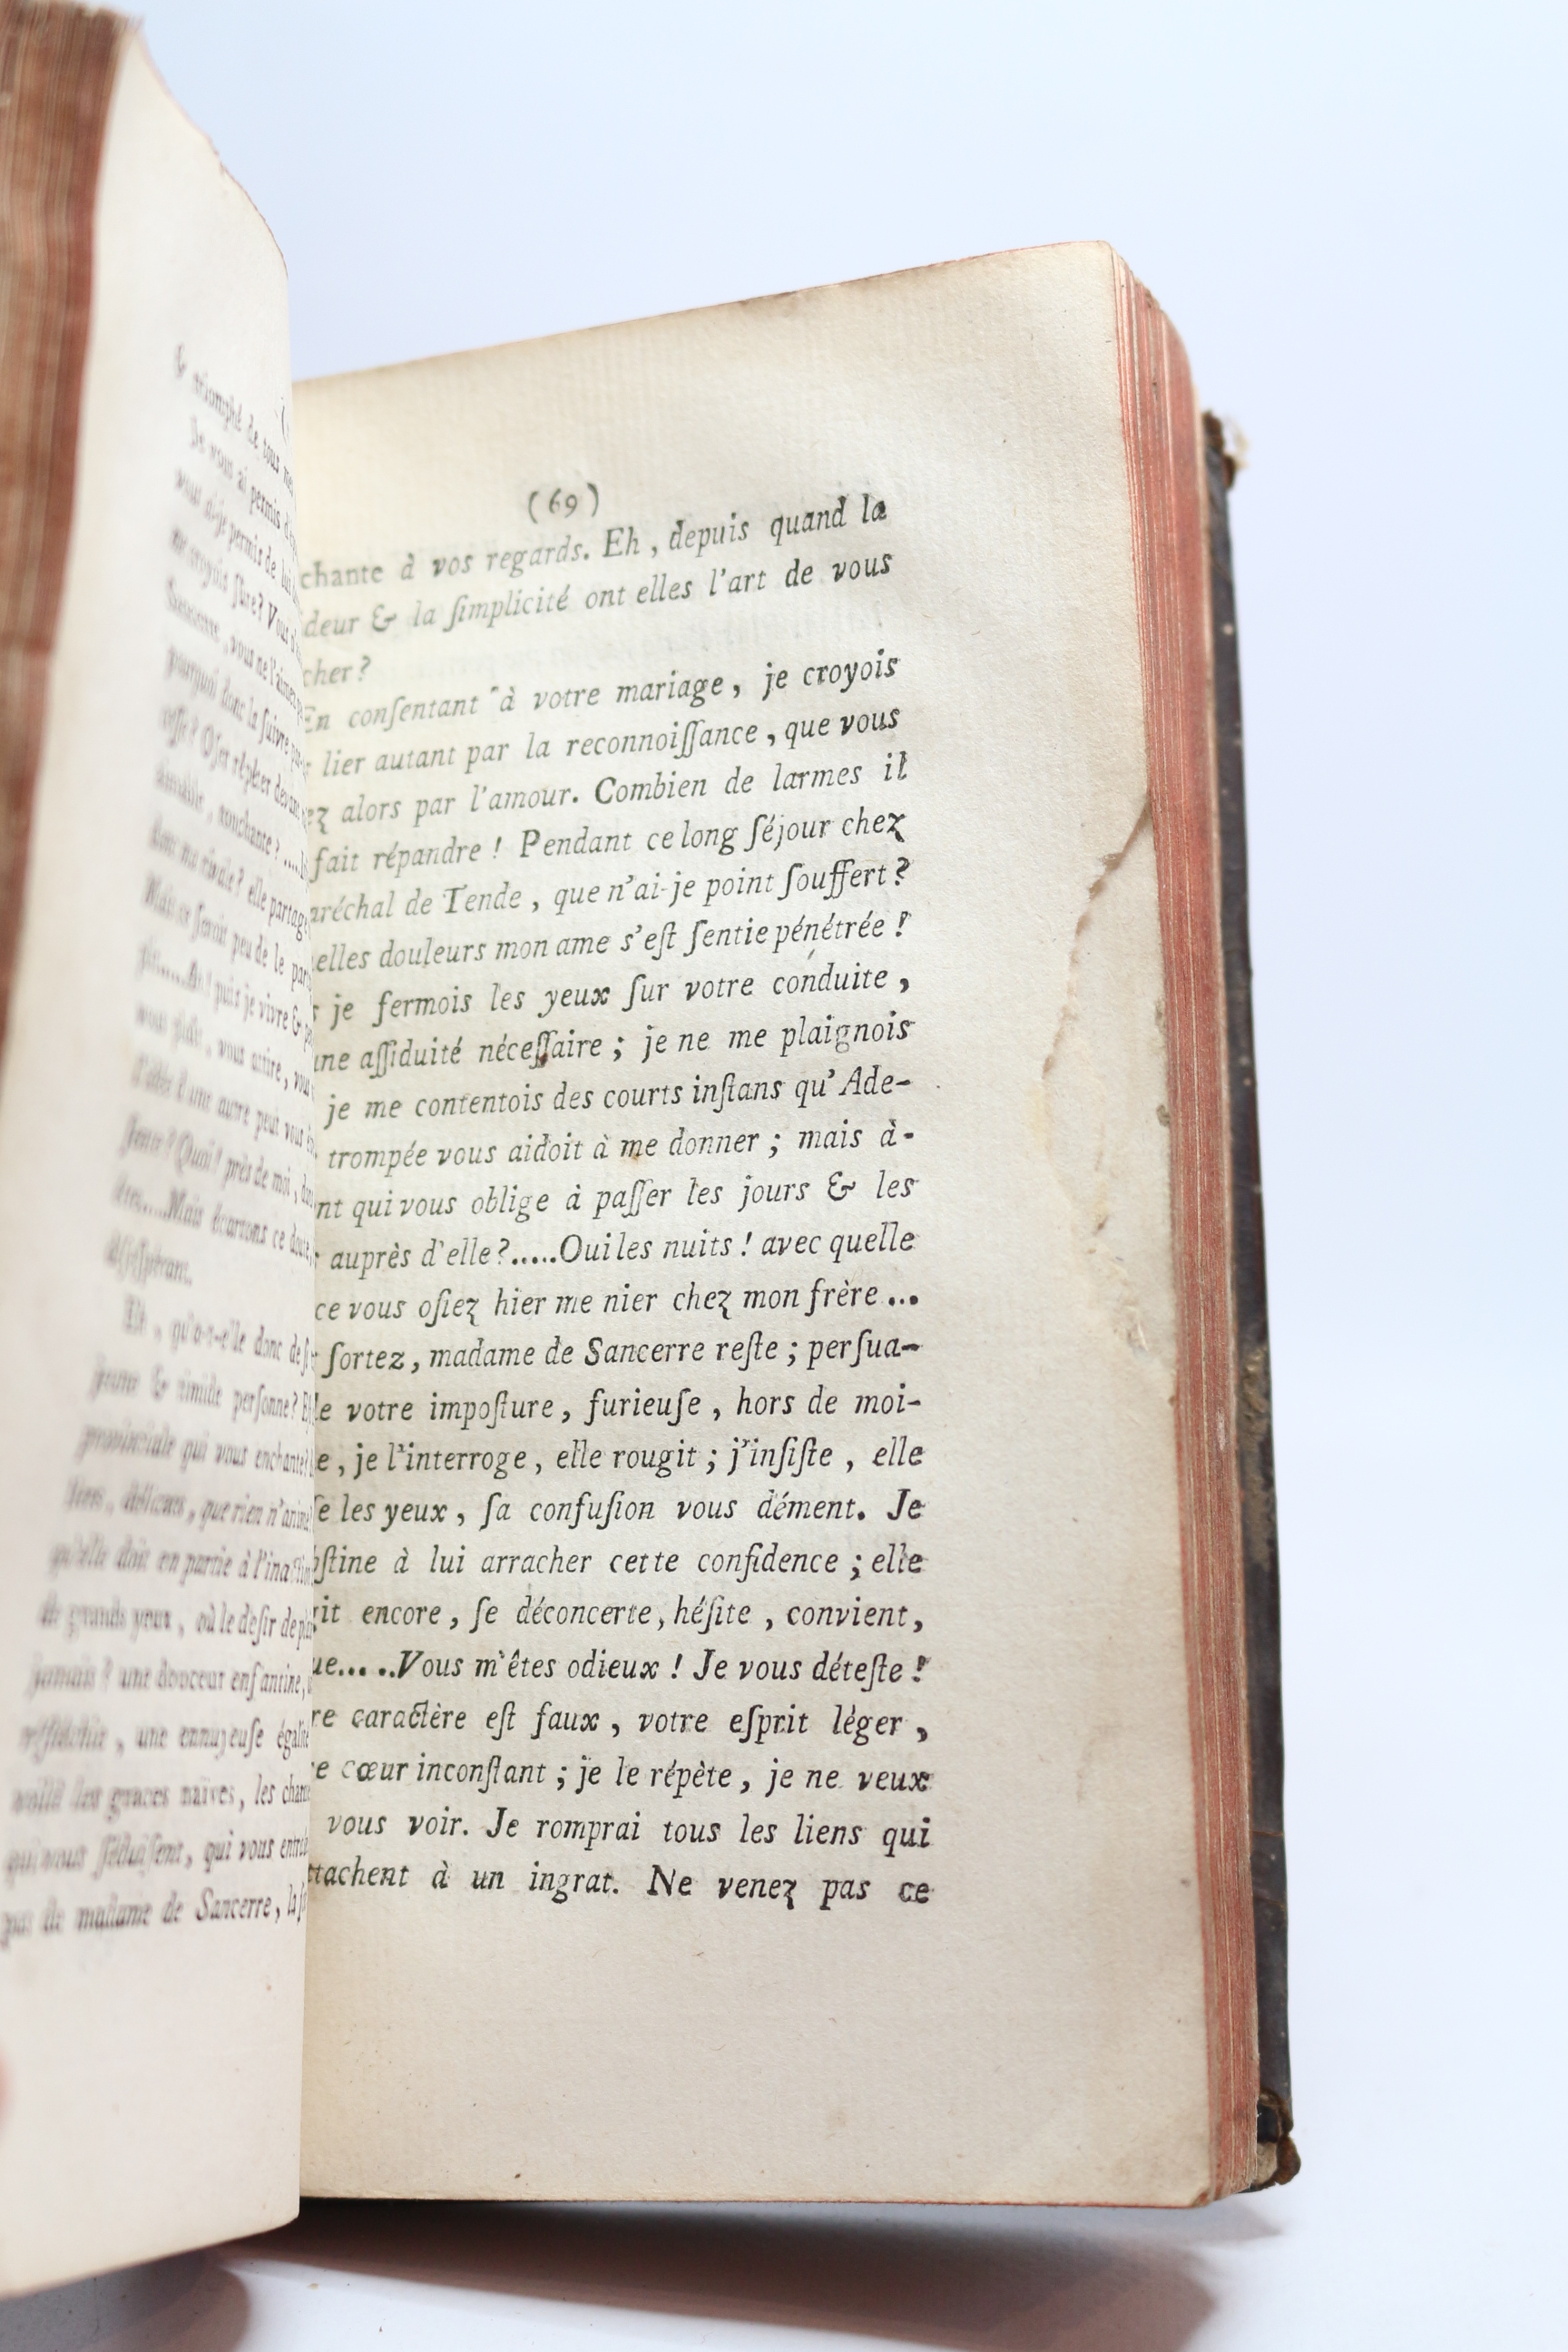 & triomphé de tous
Je vous ai permis
vous ai-je permis de lui
pourquoi donc la suivre
aimable, touchante ? ....
donc ma rivale ? elle partage
Mais ce seroit peu de le
puis je vivre &
vous plaît, vous attire, vous
d'une autre peut vous
ſence ? Quoi ! près de moi,
Mais écartons ce doute
déſeſpérant.
Eh, qu'a-t-elle donc de
jeune & timide perſonne ?
provinciale qui vous enchante
délicats, que rien n'anime
qu'elle doit en partie à
de grands yeux, où le deſir de
jamais ? une douceur enfantine,
une ennuyeuſe
voilà les graces naïves, les
qui vous ſéduiſent, qui vous
pas de madame de Sancerre,
(69)
chante à vos regards. Eh, depuis quand la
deur & la ſimplicité ont elles l'art de vous
cher ?
En conſentant à votre mariage, je croyois
lier autant par la reconnoiſſance, que vous
ez alors par l'amour. Combien de larmes il
fait répandre ! Pendant ce long ſéjour chez
aréchal de Tende, que n'ai-je point ſouffert ?
elles douleurs mon ame s'eſt ſentie pénétrée !
je fermois les yeux ſur votre conduite,
une aſſiduité néceſſaire ; je ne me plaignois
je me contentois des courts inſtans qu'Ade-
trompée vous aidoit à me donner ; mais à-
nt qui vous oblige à paſſer les jours & les
auprès d'elle ?.....Oui les nuits ! avec quelle
ce vous oſiez hier me nier chez mon frère...
ſortez, madame de Sancerre reſte ; perſua-
de votre impoſture, furieuſe, hors de moi-
e, je l'interroge, elle rougit ; j'inſiſte, elle
ſe les yeux, ſa confuſion vous dément. Je
bſtine à lui arracher cette confidence ; elle
git encore, ſe déconcerte, héſite, convient,
ue.....Vous m'êtes odieux ! Je vous déteſte !
re caractère eſt faux, votre eſprit léger,
re cœur inconſtant ; je le répète, je ne veux
vous voir. Je romprai tous les liens qui
ttachent à un ingrat. Ne venez pas ce